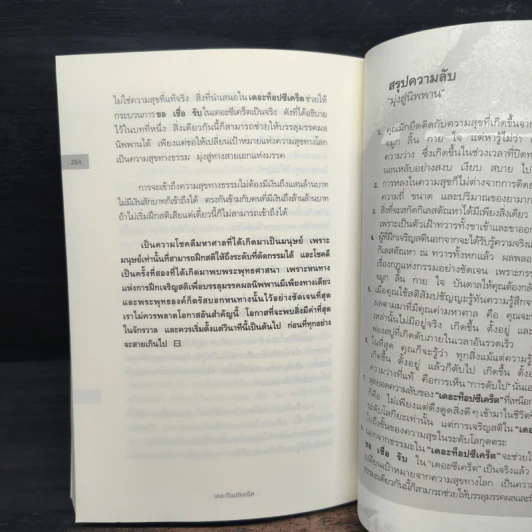 ไม่ใช่ความสุขที่แท้จริง สิ่งที่นำเสนอใน เดอะท็อปซีเคร็ต ช่วยให้
กระบวนการ ขอ เชื่อ รับ ในเดอะซีเคร็ตเป็นจริง ดังที่ได้อธิบาย
ไว้ในบทที่หนึ่ง สิ่งเดียวกันนี้ก็สามารถช่วยให้บรรลุมรรคผล
นิพพานได้ เพียงแต่ขอให้เปลี่ยนเป้าหมายจากความสุขทางโลก
เป็นความสุขทางธรรม มุ่งสู่ทางสายเอกแห่งมรรค
264
การจะเข้าถึงความสุขทางธรรมไม่ต้องมีเงินถึงแสนล้านบาท
ไม่มีเงินสักบาทก็เข้าถึงได้ ตรงกันข้ามกับคนที่มีเงินถึงแสนล้านบาท
ถ้าไม่เริ่มฝึกสติเสียแต่เดี๋ยวนี้ก็ไม่สามารถเข้าถึงได้
เป็นความโชคดีมหาศาลที่ได้เกิดมาเป็นมนุษย์ เพราะ
มนุษย์เท่านั้นที่สามารถฝึกสติให้ถึงระดับที่ตัดกรรมได้ และโชคดี
เป็นครั้งที่สองที่ได้เกิดมาพบพระพุทธศาสนา เพราะหนทาง
แห่งการฝึกเจริญสติเพื่อบรรลุมรรคผลนิพพานมีเพียงทางเดียว
และพระพุทธองค์ก็ตรัสบอกหนทางนั้นไว้อย่างชัดเจนที่สุด
เราไม่ควรพลาดโอกาสอันสำคัญนี้ โอกาสที่จะพบสิ่งมีค่าที่สุด
ในจักรวาล และควรเริ่มตั้งแต่วินาทีนี้เป็นต้นไป ก่อนที่ทุกอย่าง
จะสายเกินไป
เดอะท็อปซีเคร็ต
สรุปความลับ
"มุ่งสู่นิพพาน"
1. คุณมักยึดติดกับความสุขที่เกิดขึ้นจาก
จมูก ลิ้น กาย ใจ แต่หารู้ไม่ว่า
ความว่าง ซึ่งเกิดขึ้นในช่วงเวลาที่ปิดท
นอนหลับอย่างสงบ เงียบ สบาย ไป
2. การหลงในความสุขก็ไม่ต่างจากการติดย
ความถี่ ขนาด และปริมาณของยามาก
3. สิ่งที่จะสกัดกิเลสตัณหาได้มีเพียงสิ่งเดียว
เพราะเป็นตัวเฝ้าทวารทั้งขาเข้าและขาออก
4. ผู้ที่ฝึกเจริญสตินอกจากจะได้รับรู้ความจริงแ
กิเลสตัณหา ณ ทวารทั้งหกแล้ว ผลพลอ
เรื่องกฎแห่งกรรมอย่างชัดเจน เพราะกร
จมูก ลิ้น กาย ใจ บันดาลให้คุณต้องกลั
5. เมื่อคุณใช้สติสัมปชัญญะรู้ทันความรู้สึกจ
ผลตามมาที่มีคุณค่ามหาศาล คือ คุณจะ
เหล่านั้นไม่มีอยู่จริง เกิดขึ้น ตั้งอยู่ และ
ฟองสบู่ที่เกิดดับภายในเวลาอันรวดเร็ว
ในที่สุด คุณก็จะรู้ว่า ทุกสิ่งแม้แต่ความรู้
เกิดขึ้น ตั้งอยู่ แล้วก็ดับไป เกิดขึ้น ตั้งอ
ความว่างที่แท้ คือการเห็น "การดับไป" นั่นเอ
สุดยอดความลับของ "เดอะท็อปซีเคร็ต" ที่เหนือก
ก็คือ ไม่เพียงแต่ดึงดูดสิ่งดีๆ เข้ามาในชีวิต
ระดับโลกียะเท่านั้น แต่การเจริญสติใน "เดอ
ไปถึงขั้นของความสุขในระดับโลกุตตระ
นอกจากธรรมะใน "เดอะท็อปซีเคร็ต" จะช่วยให้
ขอ เชื่อ รับ ใน "เดอะซีเคร็ต" เป็นจริงแล้ว
เปลี่ยนเป้าหมายจากความสุขทางโลก เป็นความ
ธรรมะเดียวกันนี้ก็สามารถช่วยให้บรรลุมรรคผลและนิ